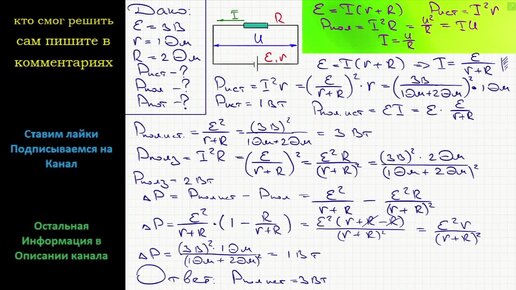 кто смог решить
сам пишите в
комментариях
Ставим лайки
Подписываемся на
Канал
Остальная
Информация в
Описании канала
Дано:
Ɛ = 3В
r = 1 Ом
R = 2 Ом
Pист - ?
Pпол - ?
Pпот - ?
I R
U
Ɛ, r
Ɛ = I(r+R) Pист = I²r
Pпол = I²R = U²/R = IU
I = U/R
Ɛ = I(r+R) ⇒ I = Ɛ/(r+R)
Pист = I²r = (Ɛ/(r+R))² · r = (3В/(1Ом+2Ом))² · 1Ом
Pист = 1Вт Pполн ист = ƐI = Ɛ · Ɛ/(r+R)
Pполн ист = Ɛ²/(r+R) = (3В)²/(1Ом+2Ом) = 3 Вт
Pполз = I²R = (Ɛ/(r+R))² = Ɛ²R/(r+R)² = (3В)² · 2Ом/(1Ом+2Ом)²
Pполз = 2Вт
ΔP = Pполн ист - Pпол = Ɛ²/(r+R) - Ɛ²R/(r+R)²
ΔP = Ɛ²/(r+R) · (1 - R/(r+R)) = Ɛ²(r+R-R)/(r+R)² = Ɛ²r/(r+R)²
ΔP = (3В)² · 1Ом/(1Ом+2Ом)² = 1Вт
Ответ: Pполн ист = 3Вт